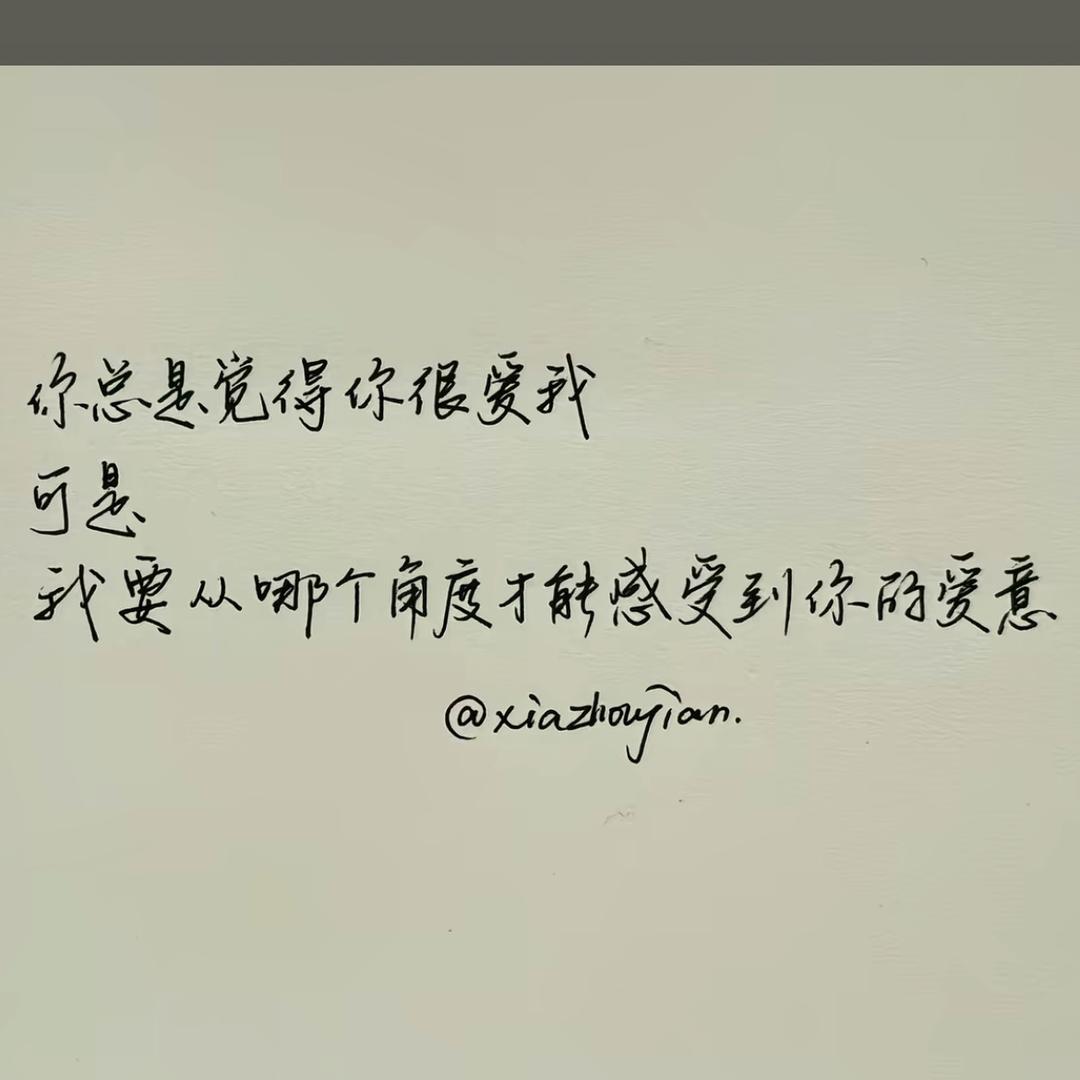 你总是觉得你很爱我
可是
我要从哪个角度才能感受到你的爱意
@xiazhoujian.